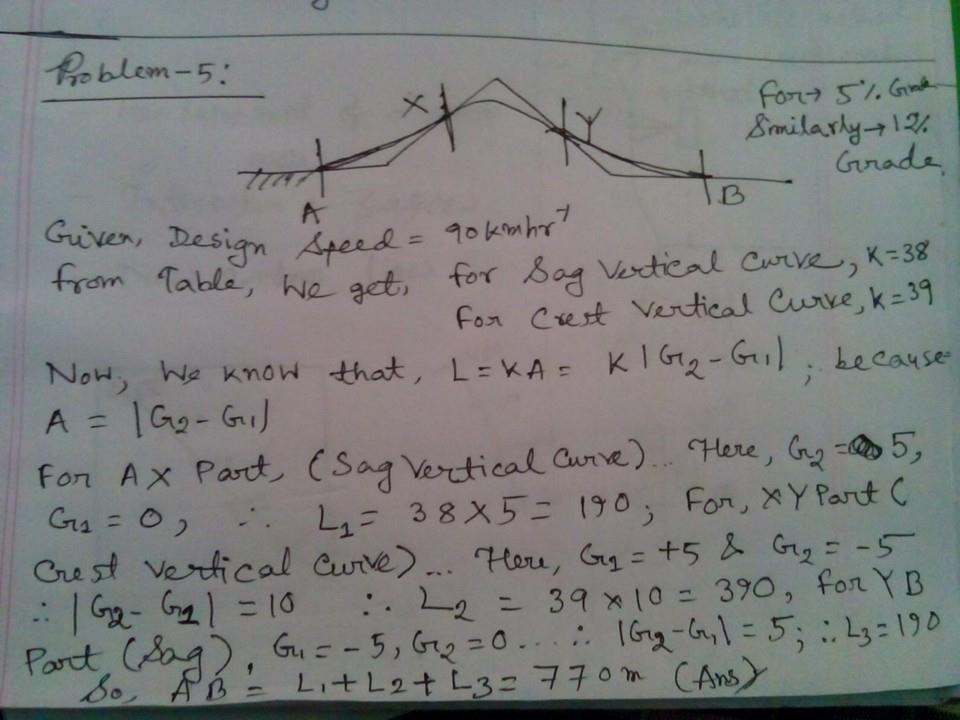 Problem-5:
X
Y
A
B
For→ 5% Grade
Similarly→ 12%
Grade
Given, Design Speed = 90 kmhr⁻¹
from Table, We get, for Sag Vertical Curve, K=38
For Crest Vertical Curve, K=39
Now, We know that, L = KA = K|G2-G1| ; because
A = |G2-G1|
For AX Part, (Sag Vertical Curve)... Here, G2 = 5,
G1 = 0, ∴ L1 = 38×5 = 190; For, XY Part (
Crest Vertical Curve)... Here, G1 = +5 & G2 = -5
∴ |G2-G1| = 10 ∴ L2 = 39×10 = 390, For YB
Part (Sag), G1 = -5, G2 = 0... ∴ |G2-G1| = 5; ∴ L3 = 190
So, AB = L1+L2+L3 = 770m (Ans)